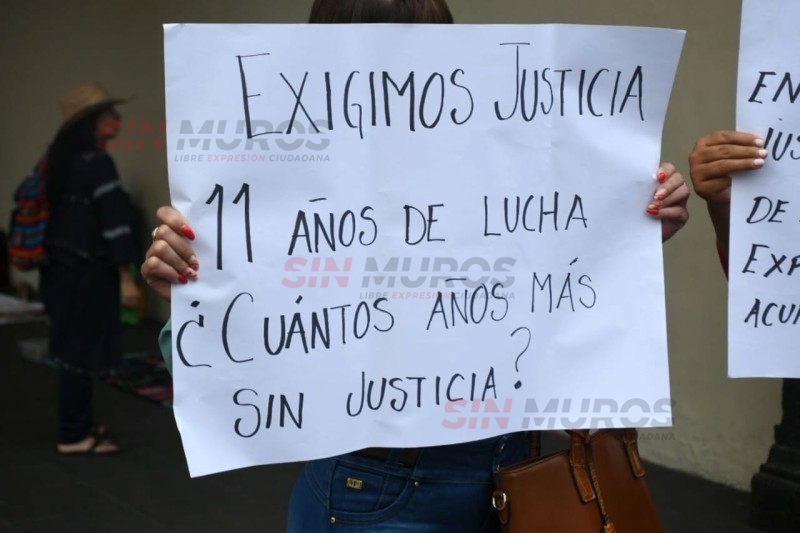 EXIGIMOS JUSTICIA
11 AÑOS DE LUCHA
¿CUÁNTOS AÑOS MÁS
SIN JUSTICIA?
EN
DE
SIN MUROS
LIBRE EXPRESIÓN CIUDADANA
SIN MUROS
LIBRE EXPRESIÓN CIUDADANA
SIN MUROS